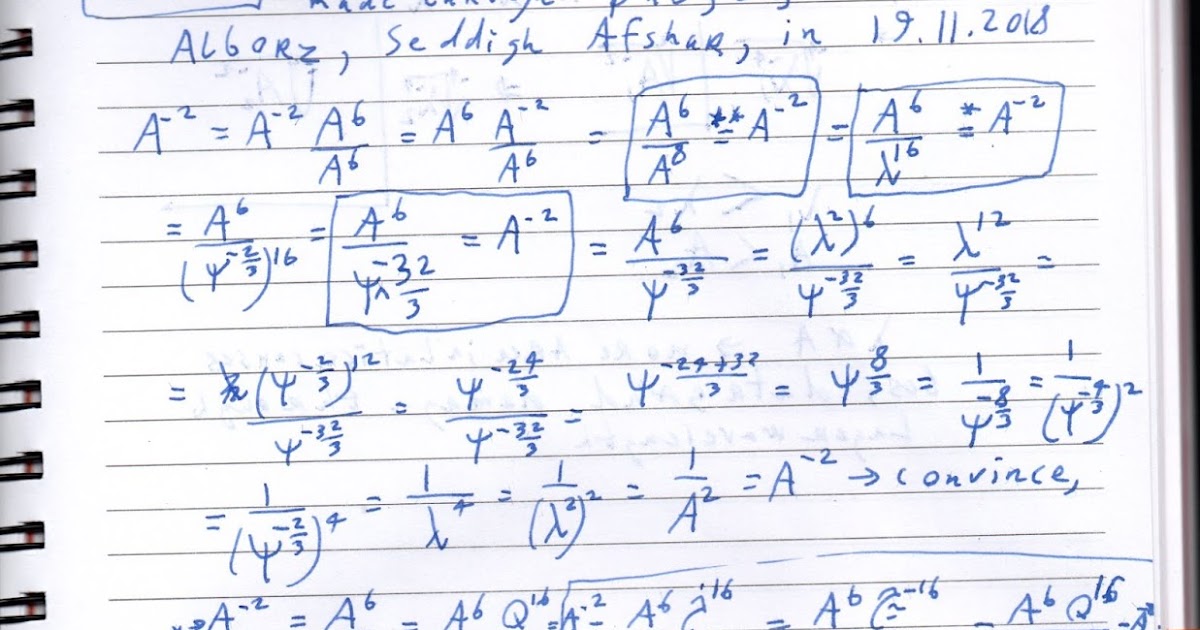 made
Alborz, Seddigh Afshar, in 19.11.2018
A⁻² = A⁻² A⁶/A⁶ = A⁶ A⁻²/A⁶ = A⁶/A⁸ **= A⁻² = A⁶/λ¹⁶ *= A⁻²
= A⁶/(ψ^(-2/3))¹⁶ = A⁶/ψ^(-32/3) = A⁻² = A⁶/ψ^(-32/3) = (λ²)⁶/ψ^(-32/3) = λ¹²/ψ^(-32/3) =
= (ψ^(-2/3))¹²/ψ^(-32/3) = ψ^(-24/3)/ψ^(-32/3) = ψ^((-24+32)/3) = ψ^(8/3) = 1/ψ^(-8/3) = 1/(ψ^(-4/3))²
= 1/(ψ^(-2/3))⁴ = 1/λ⁴ = 1/(λ²)² = 1/A² = A⁻² → convince,
A⁻² = A⁶ = A⁶ Q¹⁶ = A⁻² = A⁶ λ¹⁶ = A⁶ = A⁶ Q¹⁶